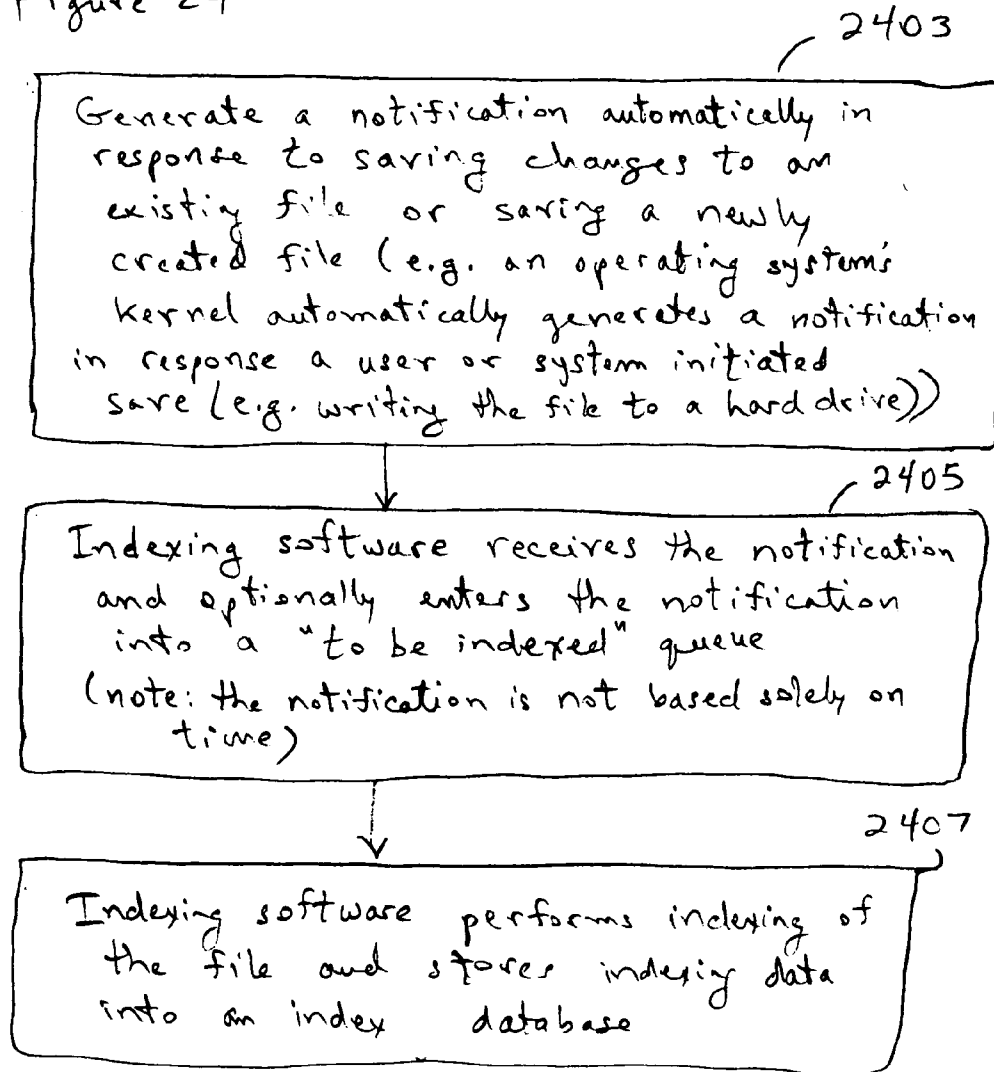 Figure 24
2403
Generate a notification automatically in
response to saving changes to an
existing file or saving a newly
created file (e.g. an operating system's
kernel automatically generates a notification
in response a user or system initiated
save (e.g. writing the file to a hard drive))
2405
Indexing software receives the notification
and optionally enters the notification
into a "to be indexed" queue
(note: the notification is not based solely on
time)
2407
Indexing software performs indexing of
the file and stores indexing data
into an index database